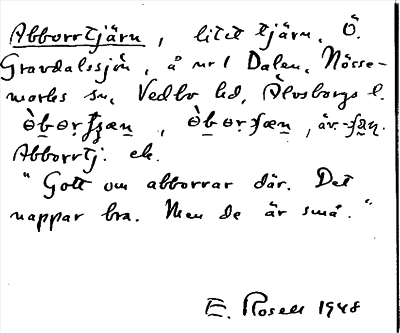 Abborrtjärn, litet tjärn, Ö.
Gravdalssjön, å nr 1 Dalen, Nösse-
marks sn, Vedbo hd, Älvsborgs l.
äv.
Abborrtj. ek.
"Gott om abborrar där. Det
nappar bra. Men de är små."
E. Rosell 1948